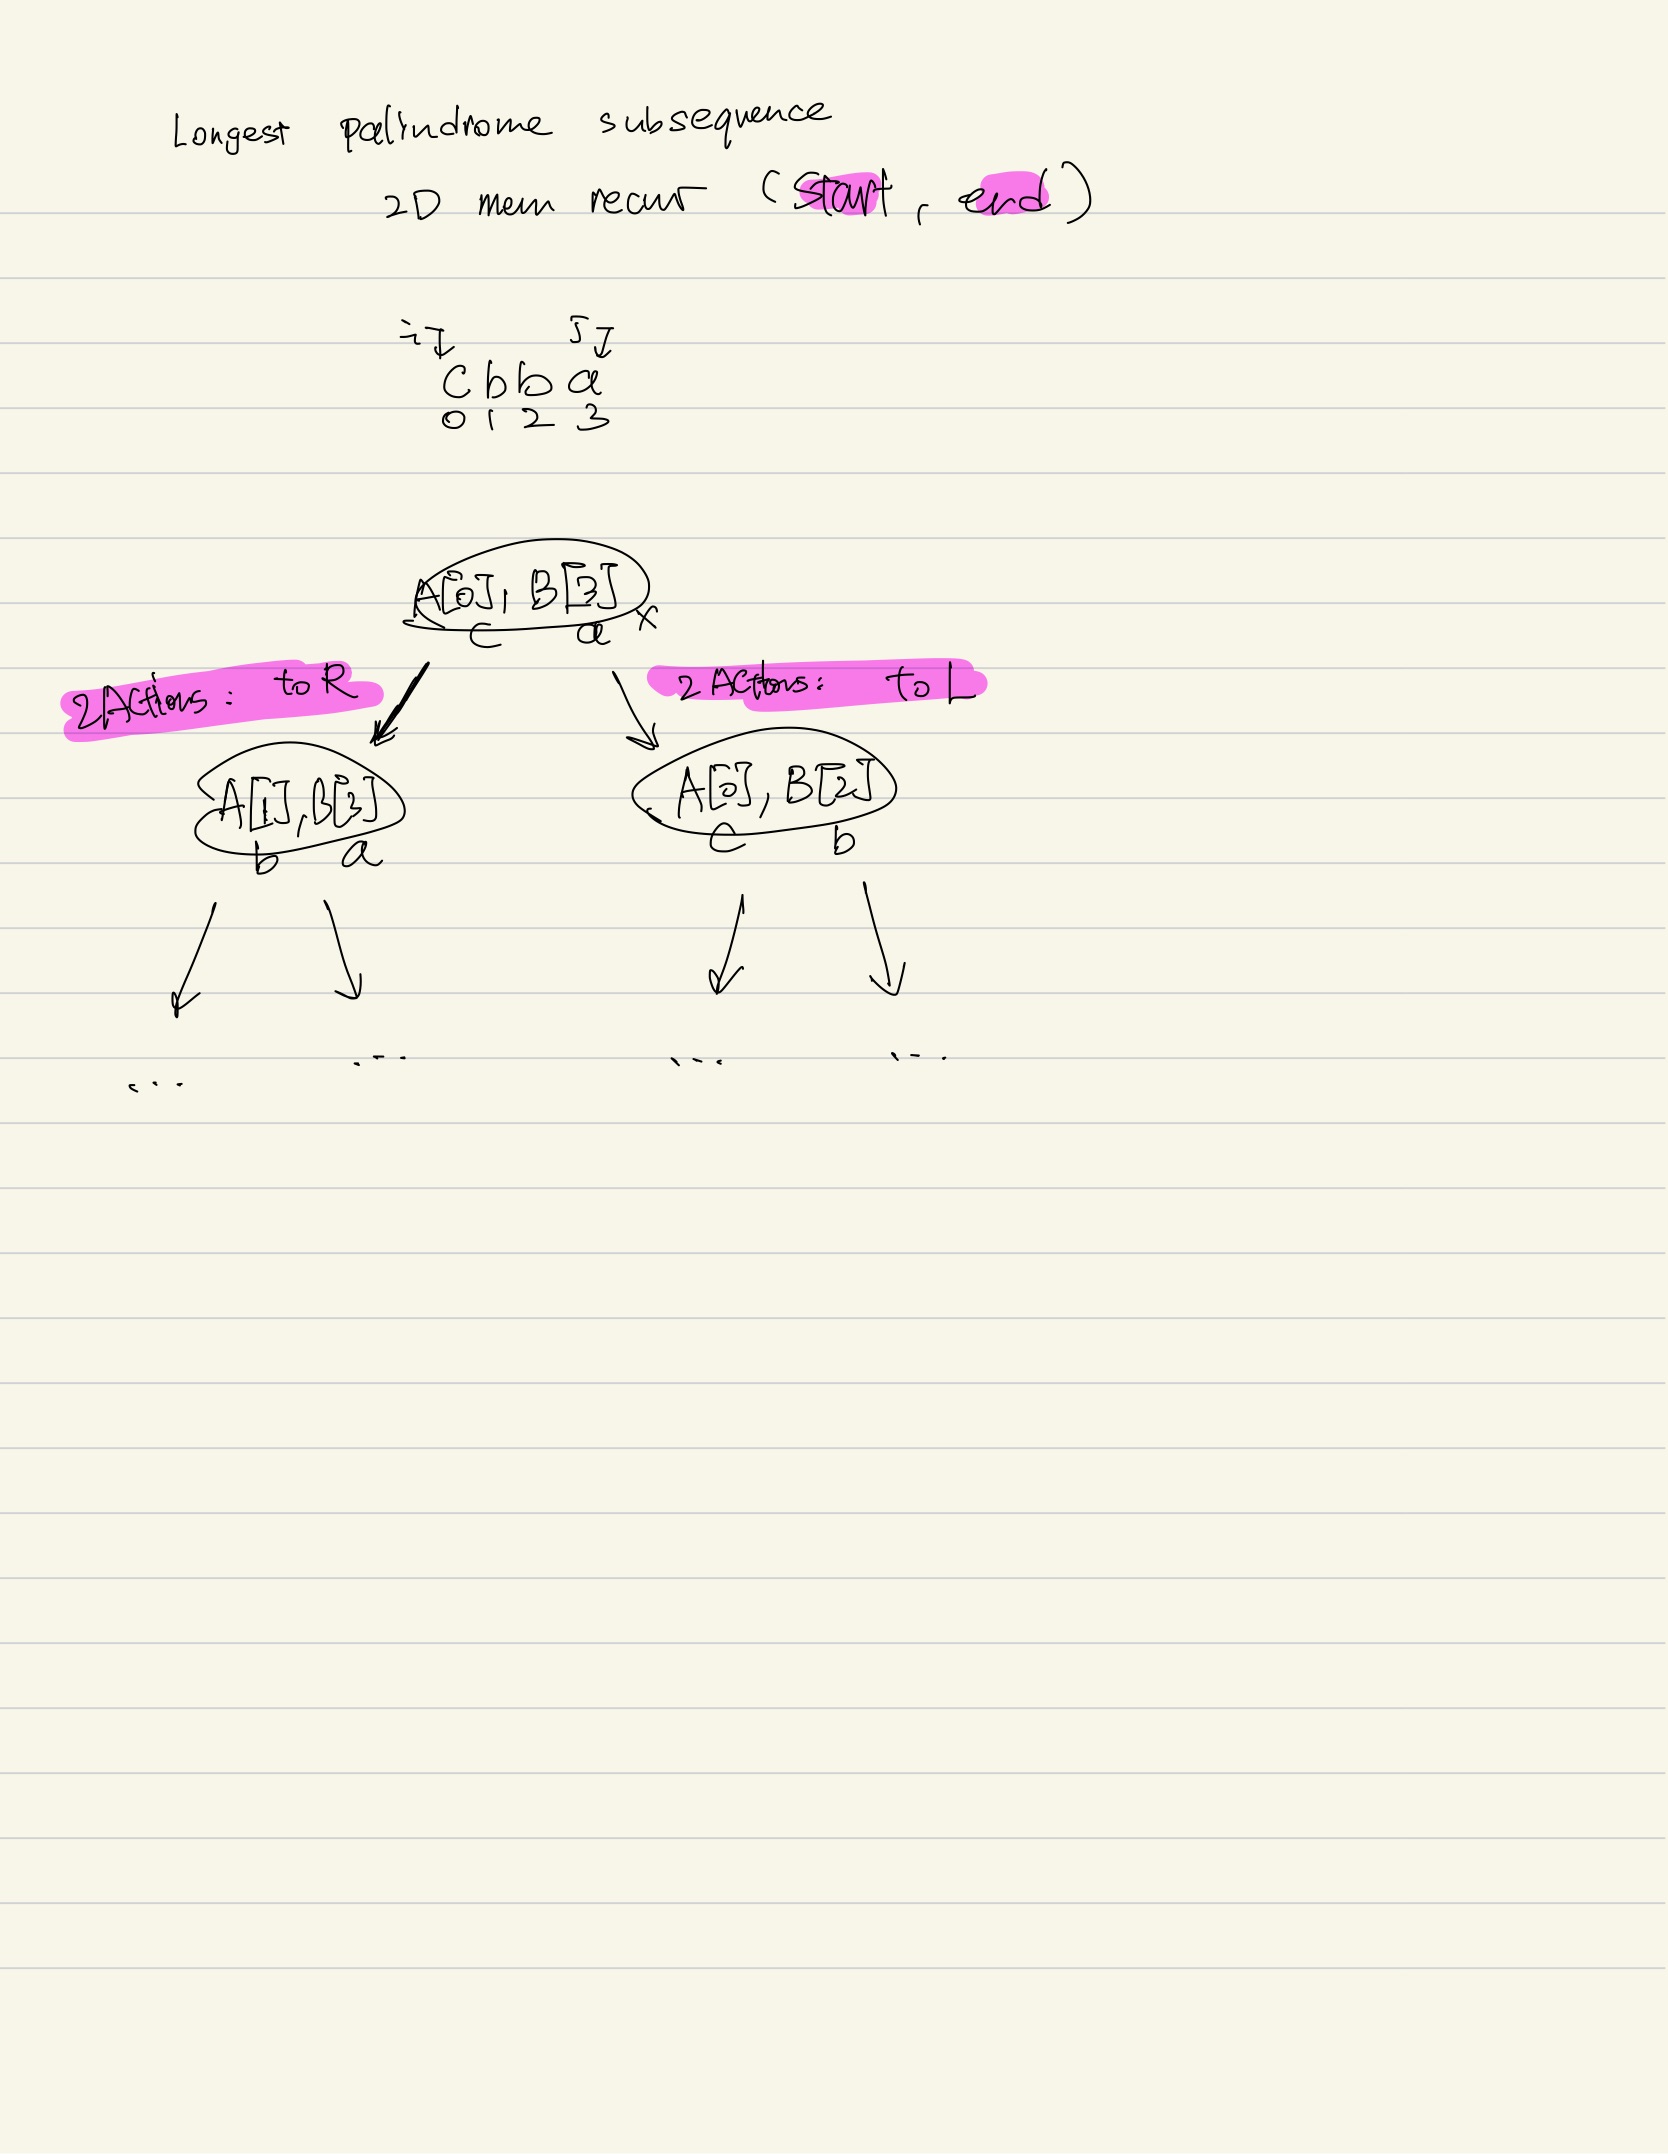 Longest palindrome subsequence
2D mem recur (start, end)
i j
c b b a
0 1 2 3
A[0], B[3]
c a x
2 Actions: to R
2 Actions: to L
A[1], B[3]
b a
A[0], B[2]
c b
... ... ... ...